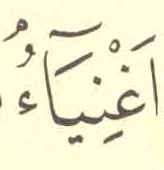 اَغْنِيَآءُ